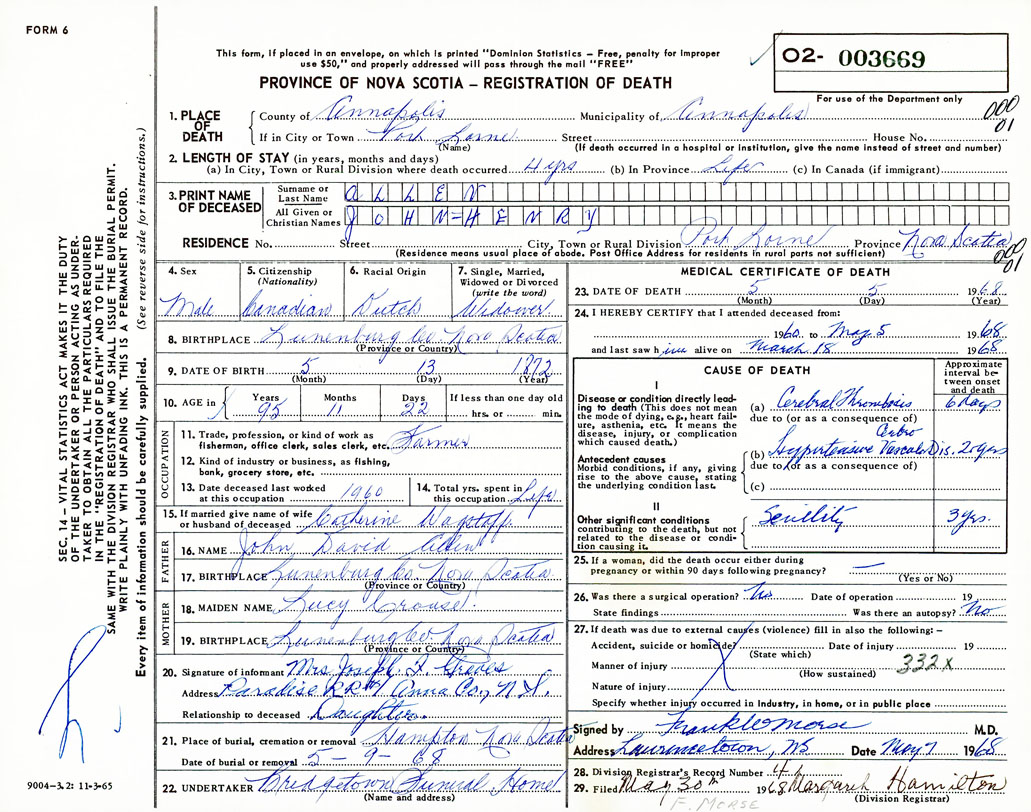 FORM 6
This form, if placed in an envelope, on which is printed "Dominion Statistics – Free, penalty for improper
use $50," and properly addressed will pass through the mail "FREE"
PROVINCE OF NOVA SCOTIA – REGISTRATION OF DEATH
02- 003669
For use of the Department only
000
01
1. PLACE OF DEATH
County of Annapolis Municipality of Annapolis
If in City or Town Port Lorne Street House No.
(Name) (If death occurred in a hospital or institution, give the name instead of street and number)
2. LENGTH OF STAY (in years, months and days)
(a) In City, Town or Rural Division where death occurred 4 yrs (b) In Province Life (c) In Canada (if immigrant)
3. PRINT NAME OF DECEASED
Surname or Last Name ALLEN
All Given or Christian Names JOHN=HENRY
RESIDENCE No. Street City, Town or Rural Division Port Lorne Province Nova Scotia
(Residence means usual place of abode. Post Office Address for residents in rural parts not sufficient)
000
01
4. Sex
Male
5. Citizenship
(Nationality)
Canadian
6. Racial Origin
Dutch
7. Single, Married,
Widowed or Divorced
(write the word)
Widower
8. BIRTHPLACE Lunenburg Co Nova Scotia
(Province or Country)
9. DATE OF BIRTH 5 13 1872
(Month) (Day) (Year)
10. AGE in Years Months Days If less than one day old
95 11 22 hrs. or min.
OCCUPATION
11. Trade, profession, or kind of work as
fisherman, office clerk, sales clerk, etc. Farmer
12. Kind of industry or business, as fishing,
bank, grocery store, etc.
13. Date deceased last worked
at this occupation 1960
14. Total yrs. spent in
this occupation Life
15. If married give name of wife
or husband of deceased Catherine Wagstaff
FATHER
16. NAME John David Allen
17. BIRTHPLACE Lunenburg Co Nova Scotia
(Province or Country)
MOTHER
18. MAIDEN NAME Lucy Crouse
19. BIRTHPLACE Lunenburg Co Nova Scotia
(Province or Country)
20. Signature of informant Mrs Joseph F. Greves
Address Paradise RR#1 Anna Co., N.S.
Relationship to deceased Daughter
21. Place of burial, cremation or removal Hampton Nova Scotia
Date of burial or removal 5-9-68
22. UNDERTAKER Bridgetown Funeral Home
(Name and address)
MEDICAL CERTIFICATE OF DEATH
23. DATE OF DEATH 5 5 1968
(Month) (Day) (Year)
24. I HEREBY CERTIFY that I attended deceased from:
1960 to May 5 1968
and last saw him alive on March 18 1968
CAUSE OF DEATH
Approximate
interval be-
tween onset
and death
I
Disease or condition directly lead-
ing to death (This does not mean
the mode of dying, e.g., heart fail-
ure, asthenia, etc. It means the
disease, injury, or complication
which caused death.)
(a) Cerebral Thrombosis 6 Days
due to (or as a consequence of)
Antecedent causes
Morbid conditions, if any, giving
rise to the above cause, stating
the underlying condition last.
Cerbro
(b) Hypertensive Vascular Dis. 20 yrs
due to (or as a consequence of)
(c)
II
Other significant conditions
contributing to the death, but not
related to the disease or condi-
tion causing it.
Senility 3 yrs.
25. If a woman, did the death occur either during
pregnancy or within 90 days following pregnancy? —
(Yes or No)
26. Was there a surgical operation? No Date of operation 19
State findings Was there an autopsy? No
27. If death was due to external causes (violence) fill in also the following: –
Accident, suicide or homicide? Date of injury 19
(State which)
Manner of injury 332X
(How sustained)
Nature of injury
Specify whether injury occurred in Industry, in home, or in public place
Signed by Frank E Morse M.D.
Address Lawrencetown, NS Date May 7 1968
28. Division Registrar's Record Number 4
29. Filed May 30th 1968 Margaret Hamilton
(Division Registrar)
F. MORSE
SEC. 14 – VITAL STATISTICS ACT MAKES IT THE DUTY
OF THE UNDERTAKER OR PERSON ACTING AS UNDER-
TAKER TO OBTAIN ALL THE PARTICULARS REQUIRED
IN THE "REGISTRATION OF DEATH" AND TO FILE THE
SAME WITH THE DIVISION REGISTRAR WHO SHALL ISSUE THE BURIAL PERMIT.
WRITE PLAINLY WITH UNFADING INK. THIS IS A PERMANENT RECORD.
Every item of information should be carefully supplied. (See reverse side for instructions.)
9004-3.2: 11-3-65